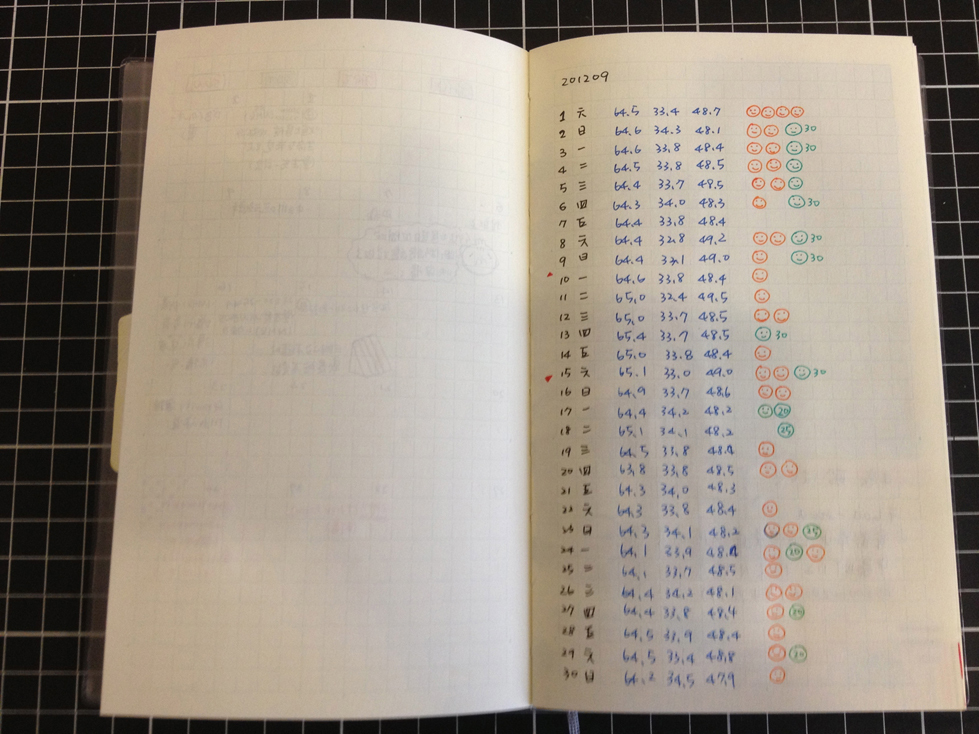 201209
1 六 64.5 33.4 48.7
2 日 64.6 34.3 48.1 30
3 一 64.6 33.8 48.4 30
4 二 64.5 33.8 48.5
5 三 64.4 33.7 48.5
6 四 64.3 34.0 48.3 30
7 五 64.4 33.8 48.4
8 六 64.4 32.8 49.2 30
9 日 64.4 49.0 30
10 一 64.6 33.8 48.4
11 二 65.0 32.4 49.5
12 三 65.0 33.7 48.5
13 四 65.4 33.7 48.5 30
14 五 65.0 33.8 48.4
15 六 65.1 33.0 49.0 30
16 日 64.9 33.7 48.6
17 一 64.4 34.2 48.2 20
18 二 65.1 34.1 48.2 25
19 三 64.5 33.8
20 四 63.8 33.8 48.5
21 五 64.3 34.0 48.3
22 六 64.3 33.8 48.4
23 日 64.3 34.1 48.2 25
24 一 64.1 33.9 20
25 二 64.1 33.7 48.5
26 三 64.4 34.2 48.1
27 四 64.4 33.8 48.4 30
28 五 64.5 33.9 48.4
29 六 64.5 33.4 48.8 30
30 日 64.2 34.5 47.9